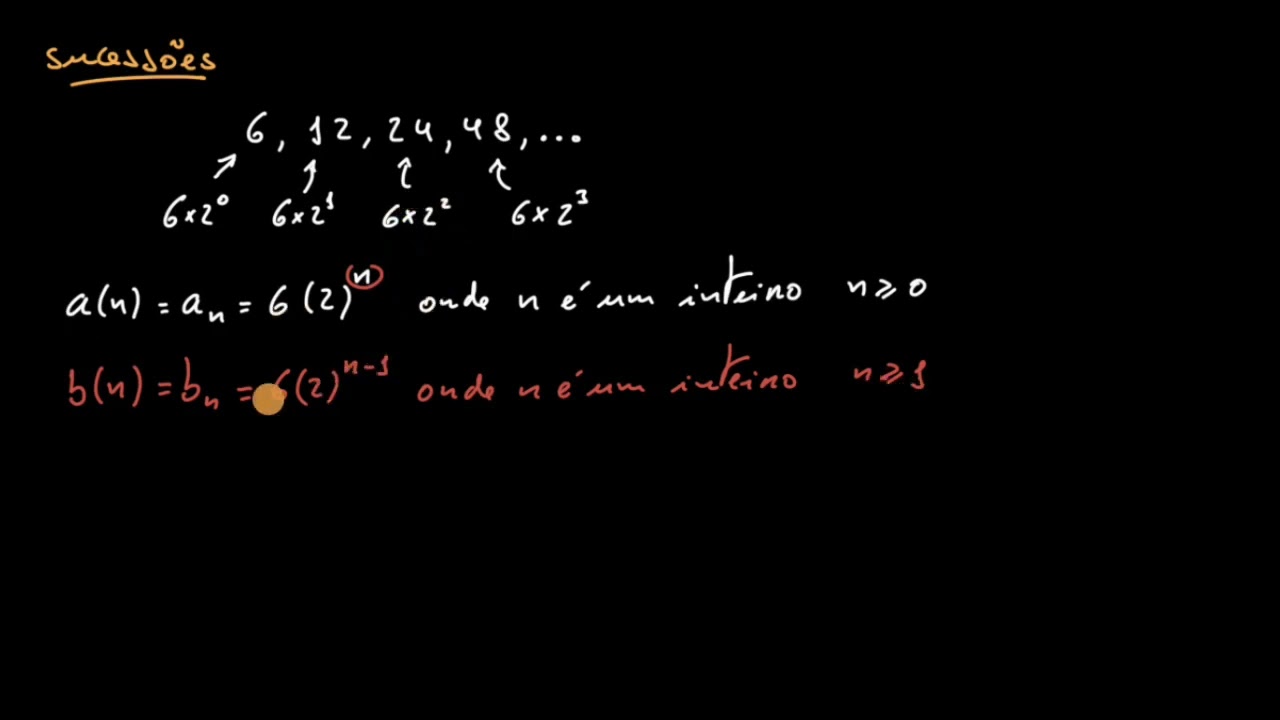 sucessões
6, 12, 24, 48, ...
6×2⁰ 6×2¹ 6×2² 6×2³
a(n) = aₙ = 6(2)ⁿ onde n é um inteiro n ⩾ 0
b(n) = bₙ = 6(2)ⁿ⁻¹ onde n é um inteiro n ⩾ 1